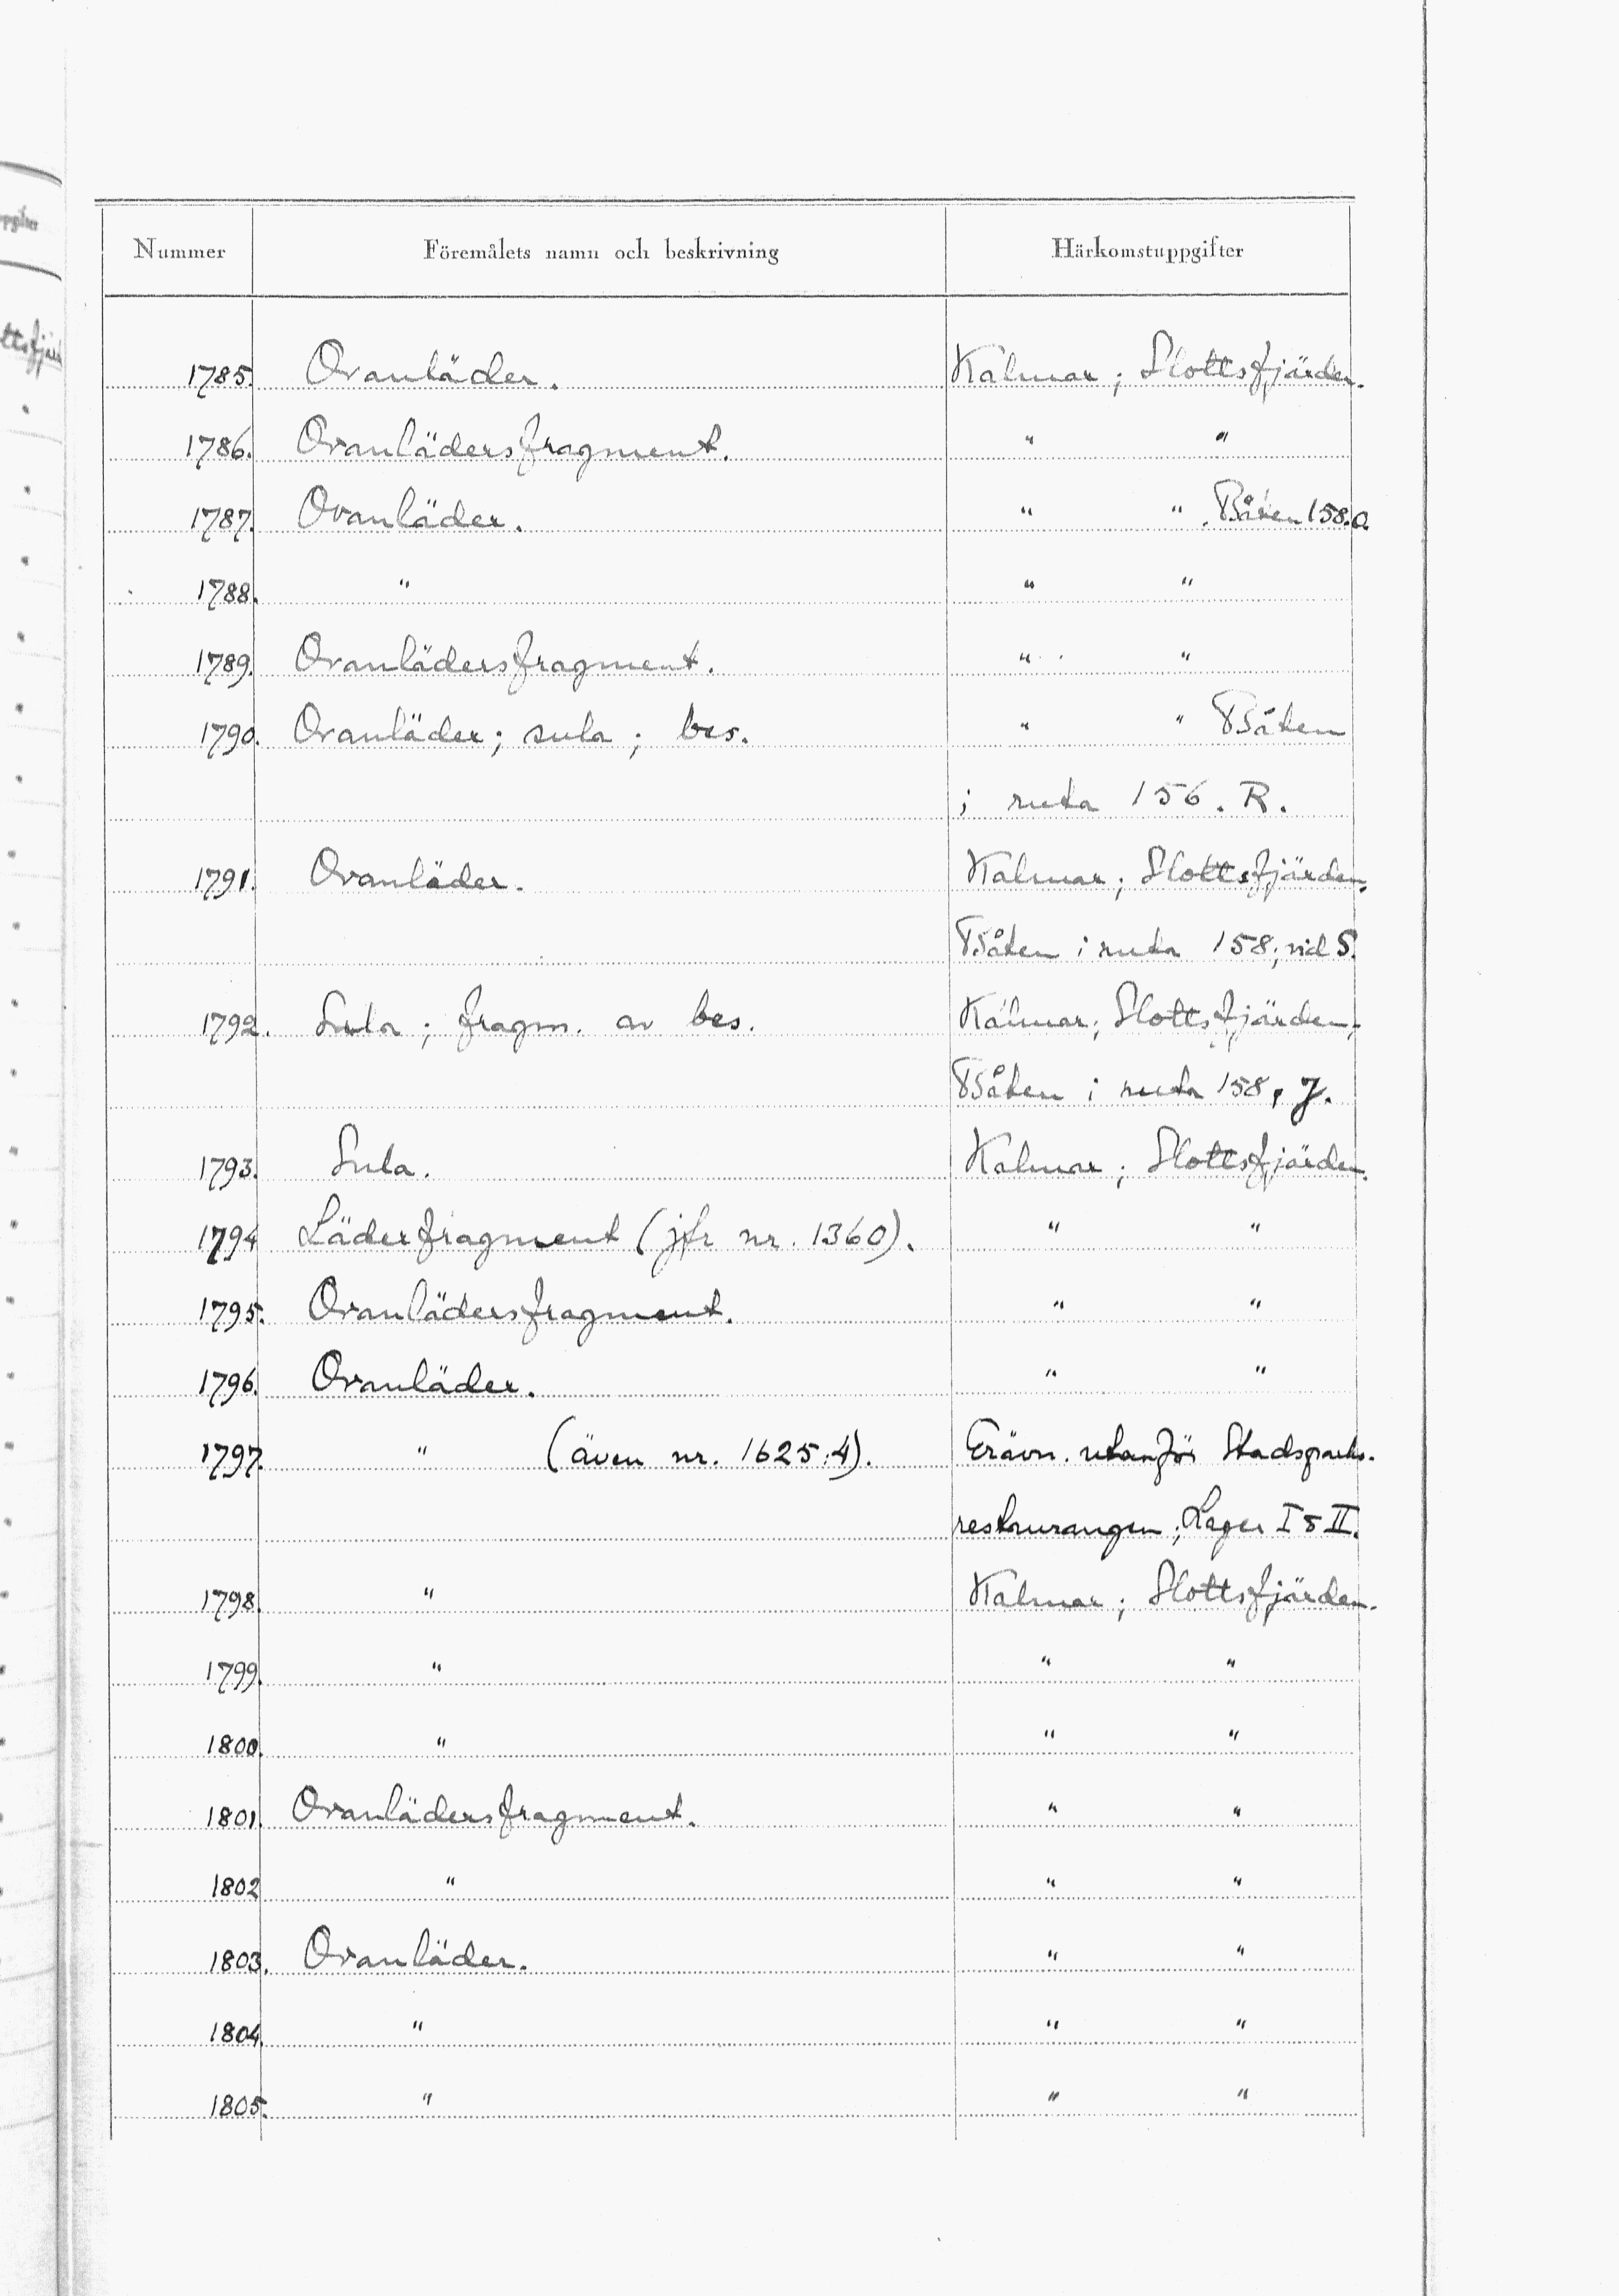 ppgifter
ttsfjär
Nummer Föremålets namn och beskrivning Härkomstuppgifter
1785. Ovanläder. Kalmar; Slottsfjärden.
1786. Ovanlädersfragment. " "
1787. Ovanläder. " ". Båten 158.O.
1788. " " "
1789. Ovanlädersfragment. " "
1790. Ovanläder; sula; bes. " " Båten
i ruta 156. R.
1791. Ovanläder. Kalmar; Slottsfjärden,
Båten i ruta 158; vid S.
1792. Sula; fragm. av bes. Kalmar; Slottsfjärden;
Båten i ruta 158,
1793. Sula. Kalmar; Slottsfjärden.
1794 Läderfragment (jfr nr. 1360). " "
1795. Ovanlädersfragment. " "
1796. Ovanläder. " "
1797. " (även nr. 1625:4). utanför Stadsparks-
restaurangen; Lager I & II.
1798. " Kalmar; Slottsfjärden.
1799. " " "
1800. " " "
1801. Ovanlädersfragment. " "
1802 " " "
1803. Ovanläder. " "
1804. " " "
1805. " " "